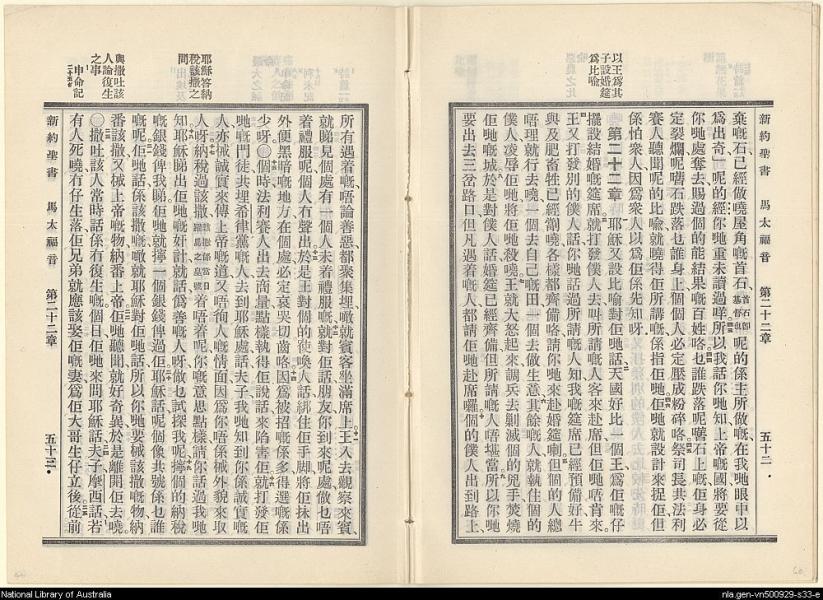 新約聖書 馬太福音 第二十二章 五十二
棄嘅石已經做嘵屋角嘅首石呢的係主所做嘅在我哋眼中以
爲出奇呢的經你哋重未讀過咩所以我話你哋知上帝嘅國將要從
你哋處奪去賜過個的能結果嘅百姓咯乜誰跌落呢嚿石上嘅佢身必
定裂爛呢嚿石跌落乜誰身上個個人必定壓成粉碎咯祭司長共法利
賽人聽聞呢的比喻就曉得佢所講嘅係指佢哋佢哋就設計來捉佢但
係怕衆人因爲衆人以爲佢係先知呀
第二十二章 耶穌又設比喻對佢哋話天國好比一個王爲佢嘅仔
擺設結婚嘅筵席就打發僕人去呌所請嘅人客來赴席但佢哋唔肯來
王又打發別的僕人話你哋話過所請嘅人知我嘅筵席已經預備好牛
與及肥畜牲已經劏嘵各樣都齊備咯請你哋來赴婚筵喇但個的人總
唔理就行去嘵一個去自己嘅田一個去做生意其餘嘅人就執住個的
僕人凌辱佢哋將佢哋殺嘵王就大怒起來調兵去剿滅個的兇手焚燒
佢哋嘅城於是對僕人話婚筵已經齊備但所請嘅人唔堪當所以你哋
要出去三岔路口但凡遇着嘅人都請佢哋赴席囉個的僕人出到路上
以王爲其
子設婚筵
爲比喻
所有遇着嘅唔論善惡都聚集埋嚟就賓客坐滿席上王入去觀察來賓
就睇見個處有一個人未着禮服嘅就對佢話朋友你到來呢處做乜唔
着禮服呢個人冇聲出於是王對個的役喚人話綁住佢手脚將佢抹出
外便黑暗嘅地方在個處必定哀哭切齒咯因爲被招嘅係多得選嘅係
少呀〇個時法利賽人出去商量點樣執得佢說話來陷害佢就打發佢
哋嘅門徒共埋希律黨嘅人去到耶穌處話夫子我哋知到你係誠實嘅
人亦係誠實來傳上帝嘅道又唔徇人嘅情面因爲你唔係憑外貌來取
人呀納稅過該撒着唔着呢你嘅意思點樣請你話過我哋
知耶穌睇出佢哋嘅奸計就話僞善嘅人呀做乜試探我呢擰個的納稅
嘅銀錢俾我睇佢哋就擰一個銀錢俾過佢耶穌話呢個像共號係乜誰
嘅呢佢哋話係該撒嘅噉就耶穌對佢哋話所以你哋要將該撒嘅物納
番該撒又將上帝嘅物納番上帝佢哋聽聞就好奇異於是離開佢去嘵
〇撒吐該人常時話係冇復生嘅個日佢哋來問耶穌話夫子摩西話若
有人死嘵冇仔生落佢兄弟就應該娶佢嘅妻爲佢大哥生仔立後從前
新約聖書 馬太福音 第二十二章 五十三
耶穌答納
稅該撒之
問
與撒吐該
人論復生
之事
申命記
National Library of Australia
nla.gen-vn500929-s33-e